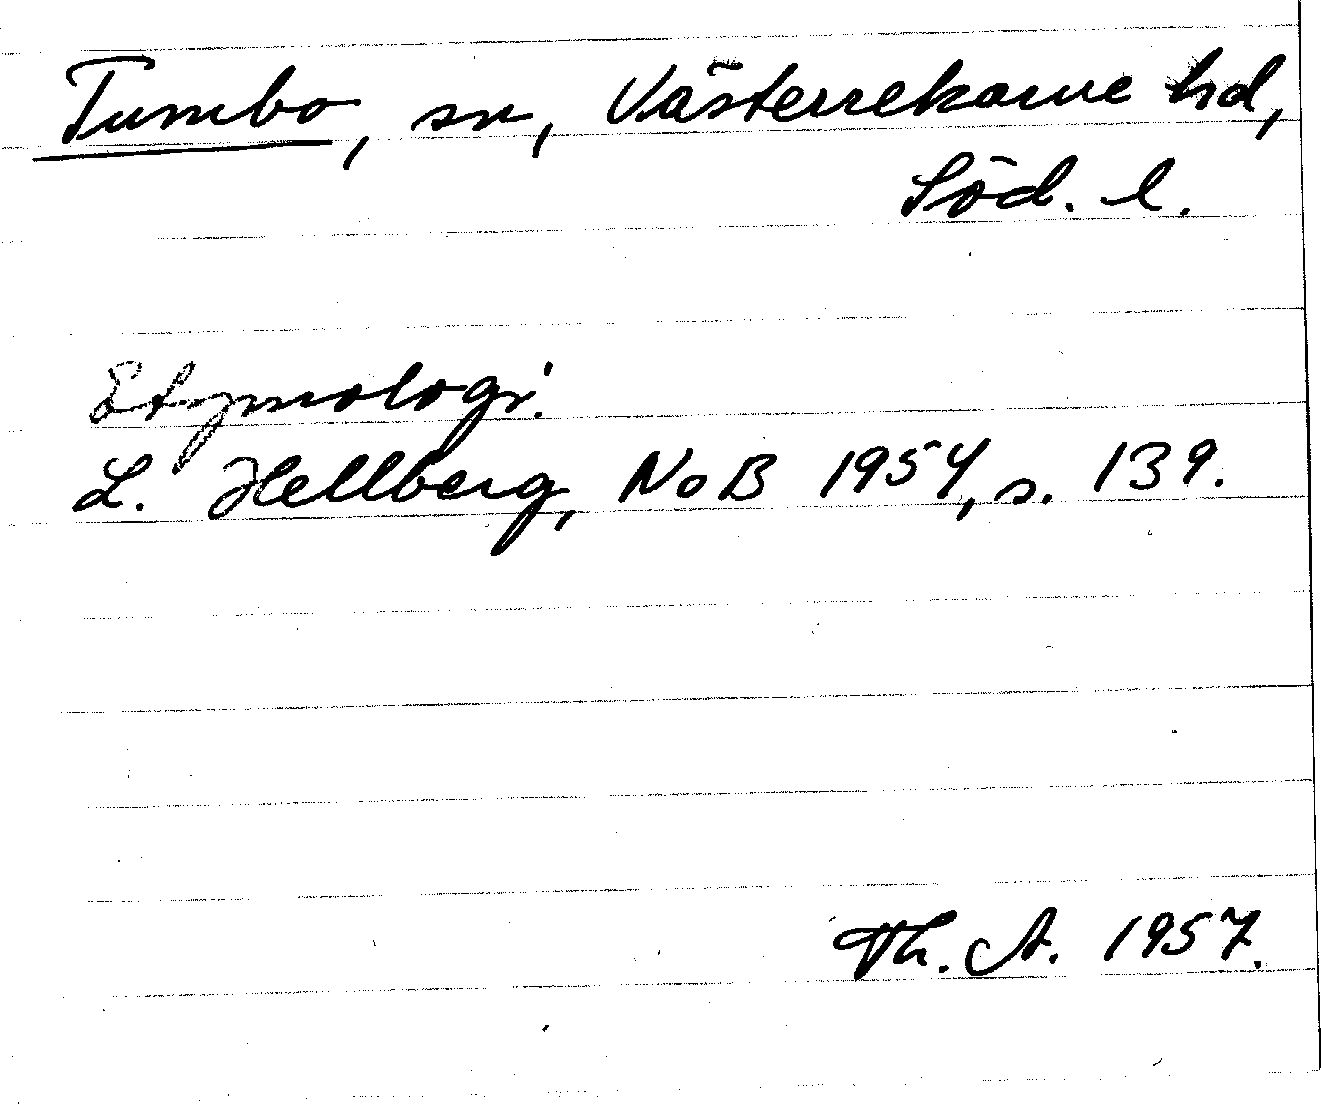 Tumbo, sn, Västerrekarne hd,
Söd. l.
Etymologi:
L. Hellberg, NoB 1954, s. 139.
Th. A. 1957.